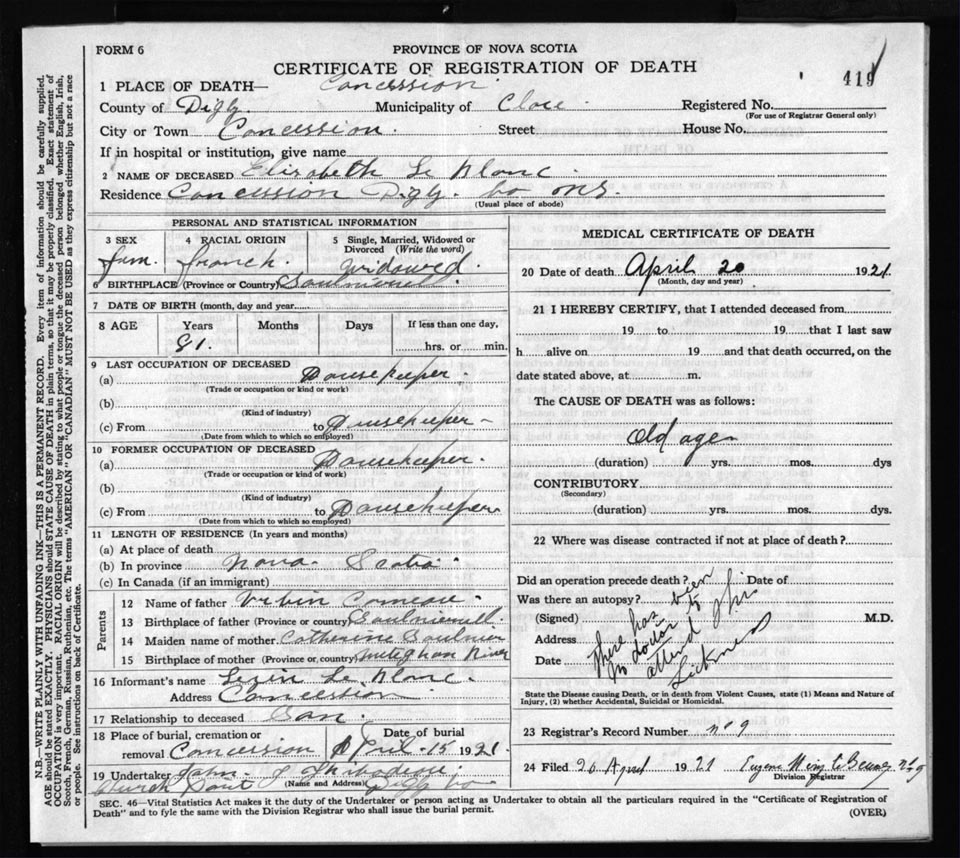 FORM 6
PROVINCE OF NOVA SCOTIA
CERTIFICATE OF REGISTRATION OF DEATH
419
1 PLACE OF DEATH— Concession
County of Digby Municipality of Clare Registered No.
(For use of Registrar General only)
City or Town Concession. Street House No.
If in hospital or institution, give name
2 NAME OF DECEASED Elizabeth Le Blanc.
Residence Concession Digby. Co. N.S.
(Usual place of abode)
PERSONAL AND STATISTICAL INFORMATION
3 SEX 4 RACIAL ORIGIN 5 Single, Married, Widowed or
Divorced (Write the word)
fem. french. widowed.
6 BIRTHPLACE (Province or Country) Saulnierville.
7 DATE OF BIRTH (month, day and year)
8 AGE Years Months Days If less than one day,
91. hrs. or min.
9 LAST OCCUPATION OF DECEASED
(a) Housekeeper.
(Trade or occupation or kind or work)
(b)
(Kind of industry)
(c) From to Housekeeper
(Date from which to which so employed)
10 FORMER OCCUPATION OF DECEASED
(a) Housekeeper.
(Trade or occupation or kind of work)
(b)
(Kind of industry)
(c) From to Housekeeper
(Date from which to which so employed)
11 LENGTH OF RESIDENCE (In years and months)
(a) At place of death
(b) In province Nova Scotia
(c) In Canada (if an immigrant)
Parents
12 Name of father Urbin Comeau.
13 Birthplace of father (Province or country) Saulniervill.
14 Maiden name of mother. Catherine Saulnier
15 Birthplace of mother (Province or, country) Meteghan River
16 Informant's name Le Blanc.
Address Concession
17 Relationship to deceased Son.
18 Place of burial, cremation or Date of burial
removal Concession April 15 1921.
19 Undertaker John. J Thibodeau.
(Name and Address)
Church Point Digby Co
MEDICAL CERTIFICATE OF DEATH
20 Date of death April 20 1921.
(Month, day and year)
21 I HEREBY CERTIFY, that I attended deceased from
19 to 19 that I last saw
h alive on 19 and that death occurred, on the
date stated above, at m.
The CAUSE OF DEATH was as follows:
Old age
(duration) yrs. mos. dys
CONTRIBUTORY
(Secondary)
(duration) yrs. mos. dys.
22 Where was disease contracted if not at place of death?
Did an operation precede death? Date of
Was there an autopsy?
(Signed) M.D.
Address
Date
there has been
no doctor to
attend this
sickness
State the Disease causing Death, or in death from Violent Causes, state (1) Means and Nature of
Injury, (2) whether Accidental, Suicidal or Homicidal.
23 Registrar's Record Number no 9
24 Filed 20 April 1921 Eugene
Division Registrar
SEC. 46—Vital Statistics Act makes it the duty of the Undertaker or person acting as Undertaker to obtain all the particulars required in the "Certificate of Registration of
Death" and to fyle the same with the Division Registrar who shall issue the burial permit.
(OVER)
N.B.—WRITE PLAINLY WITH UNFADING INK—THIS IS A PERMANENT RECORD. Every item of information should be carefully supplied.
AGE should be stated EXACTLY. PHYSICIANS should STATE CAUSE OF DEATH in plain terms, so that it may be properly classified. Exact statement of
OCCUPATION is very important. RACIAL ORIGIN will be described by stating to what people or tongue the deceased person belonged whether English, Irish,
Scotch, French, German, Russian, Ruthenian, etc. The terms "AMERICAN" OR "CANADIAN" MUST NOT BE USED as they express citizenship but not a race
or people. See instructions on back of Certificate.